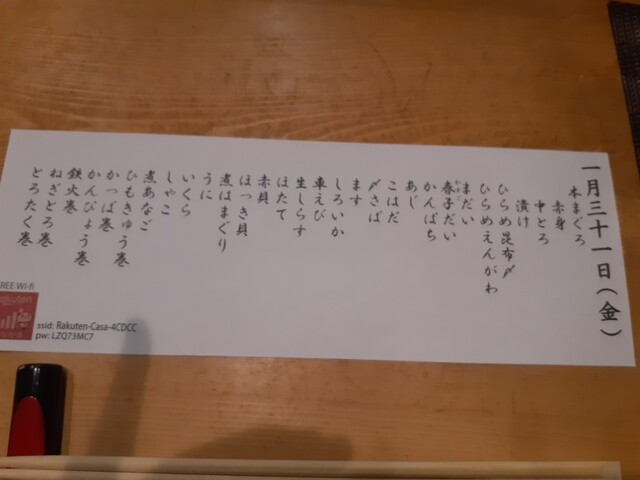 一月三十一日(金)
本まぐろ
赤身
中とろ
漬け
ひらめ昆布〆
ひらめえんがわ
まだい
春子だい
かすご
かんぱち
あじ
こはだ
〆さば
ます
しろいか
車えび
生しらす
ほたて
赤貝
ほっき貝
煮はまぐり
うに
いくら
しゃこ
煮あなご
ひもきゅう巻
かっぱ巻
かんぴょう巻
鉄火巻
ねぎとろ巻
とろたく巻
REE Wi-fi
Rakuten
ssid: Rakuten-Casa-4CDCC
pw: LZQ73MC7